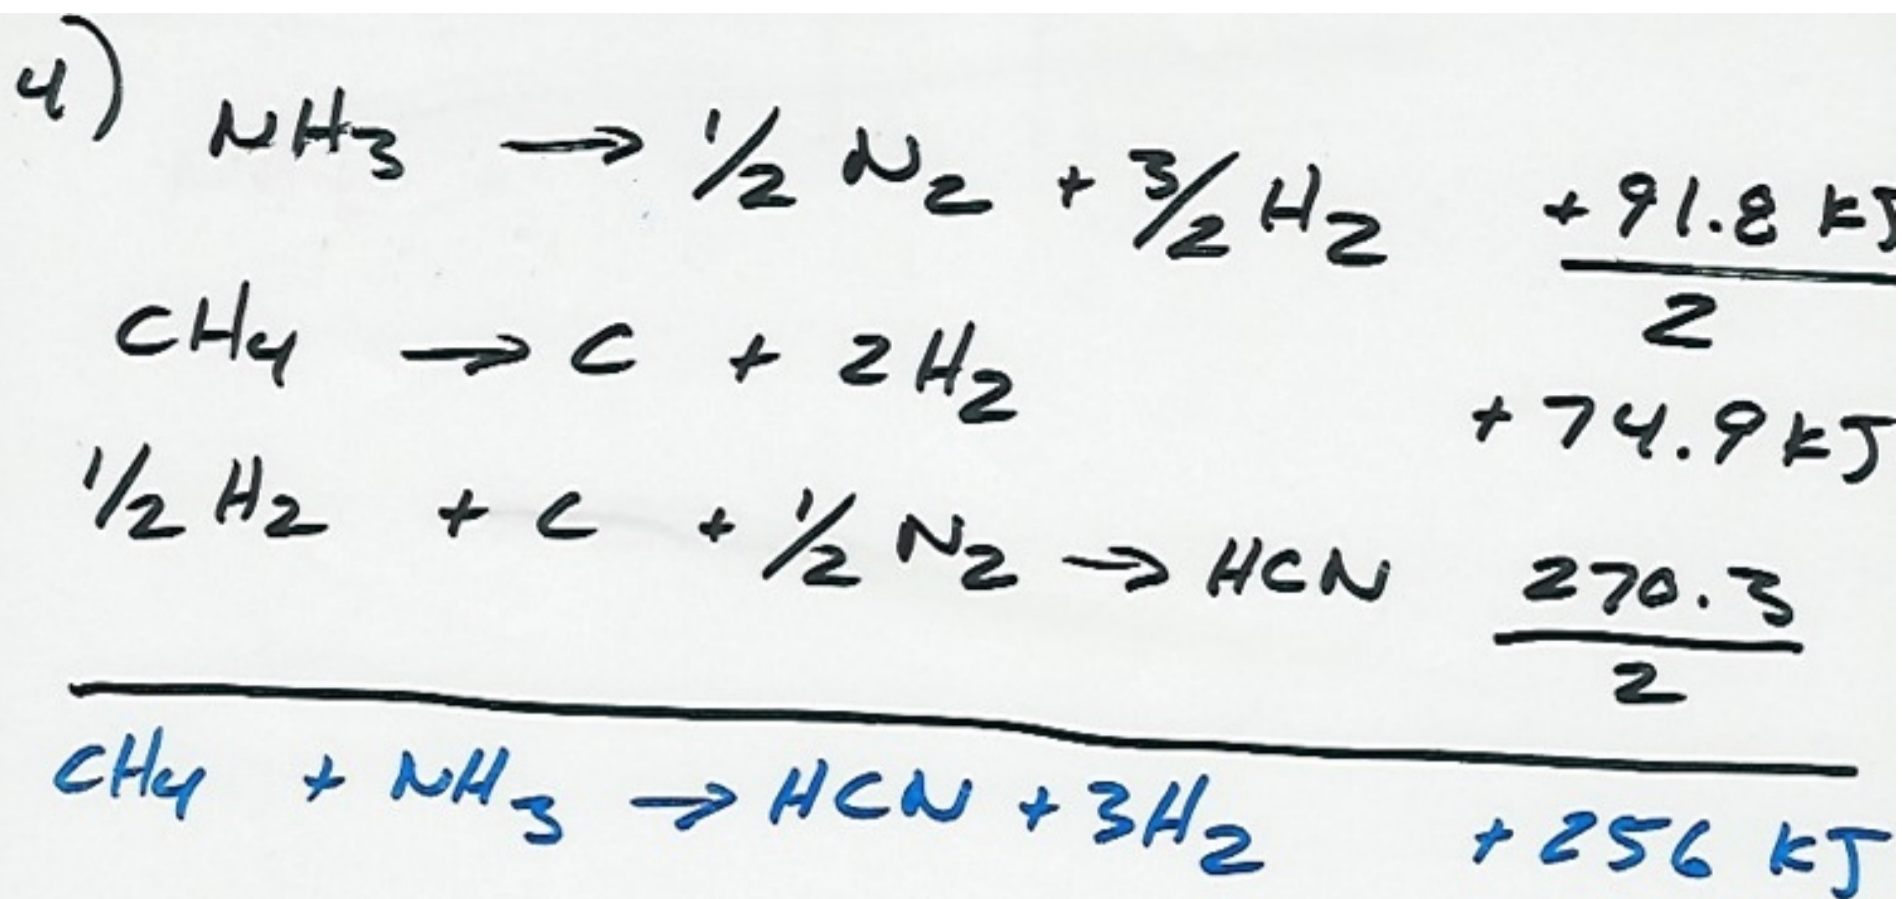 4)
NH₃ → ½ N₂ + 3/2 H₂ +91.8 kJ / 2
CH₄ → C + 2H₂ +74.9 kJ
½ H₂ + C + ½ N₂ → HCN 270.3 / 2
CH₄ + NH₃ → HCN + 3H₂ +256 kJ